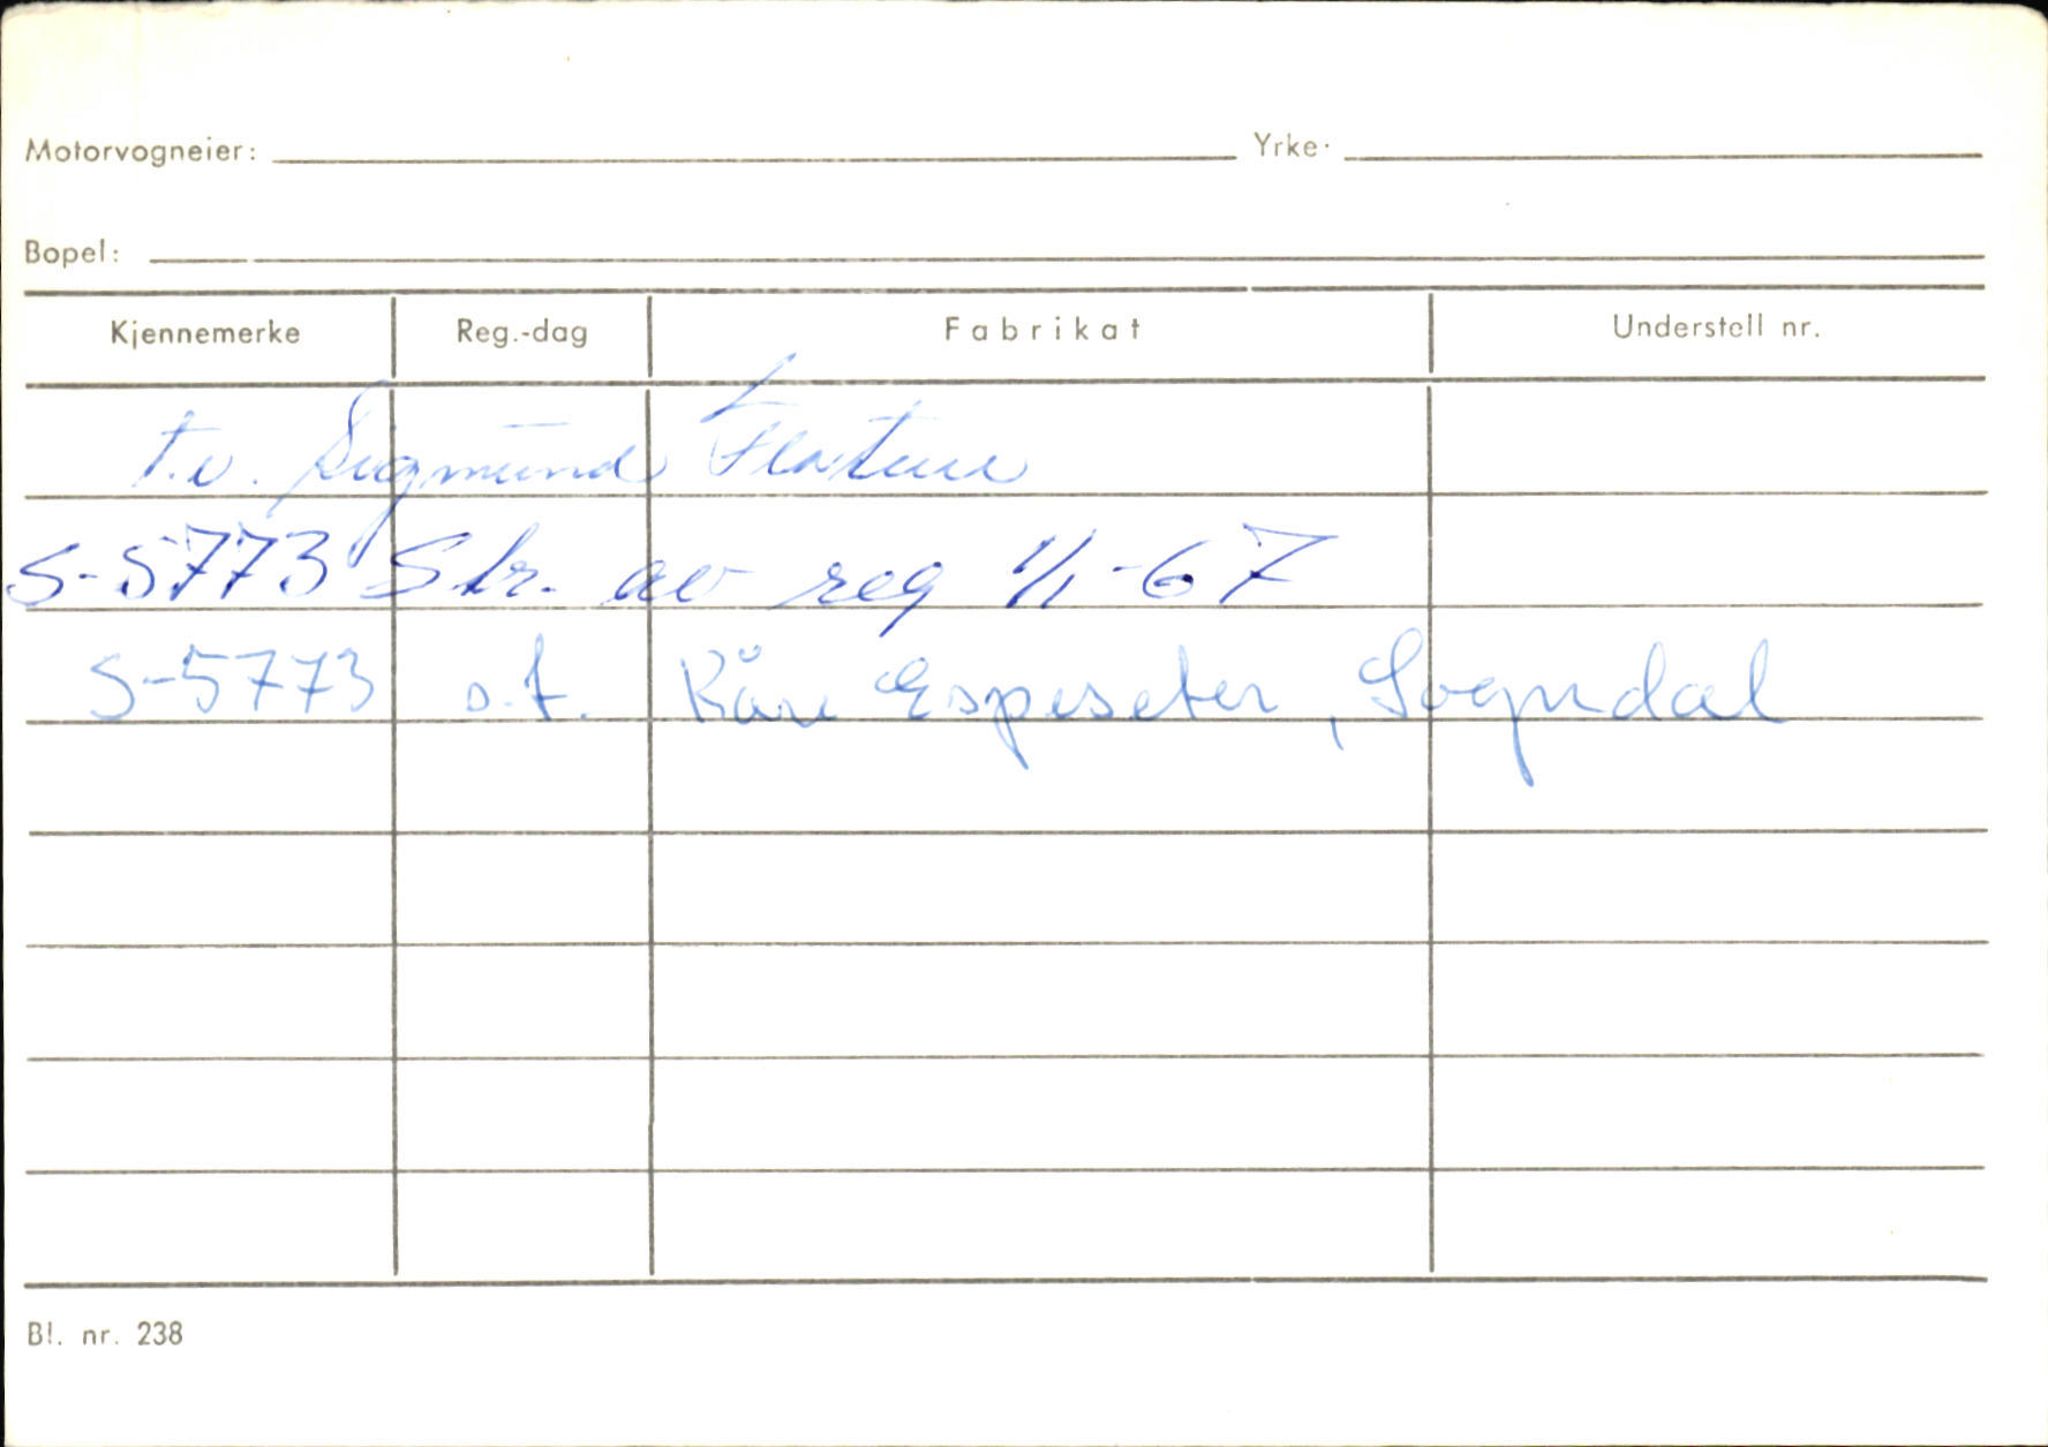 Motorvogneier: Yrke·
Bopel:
Kjennemerke Reg.-dag Fabrikat Understell nr.
t.v. Sigmund
S-5773 Str. av reg 1/1-67
S-5773 o.f. Kåre Espeseter, Sogndal
Bl. nr. 238